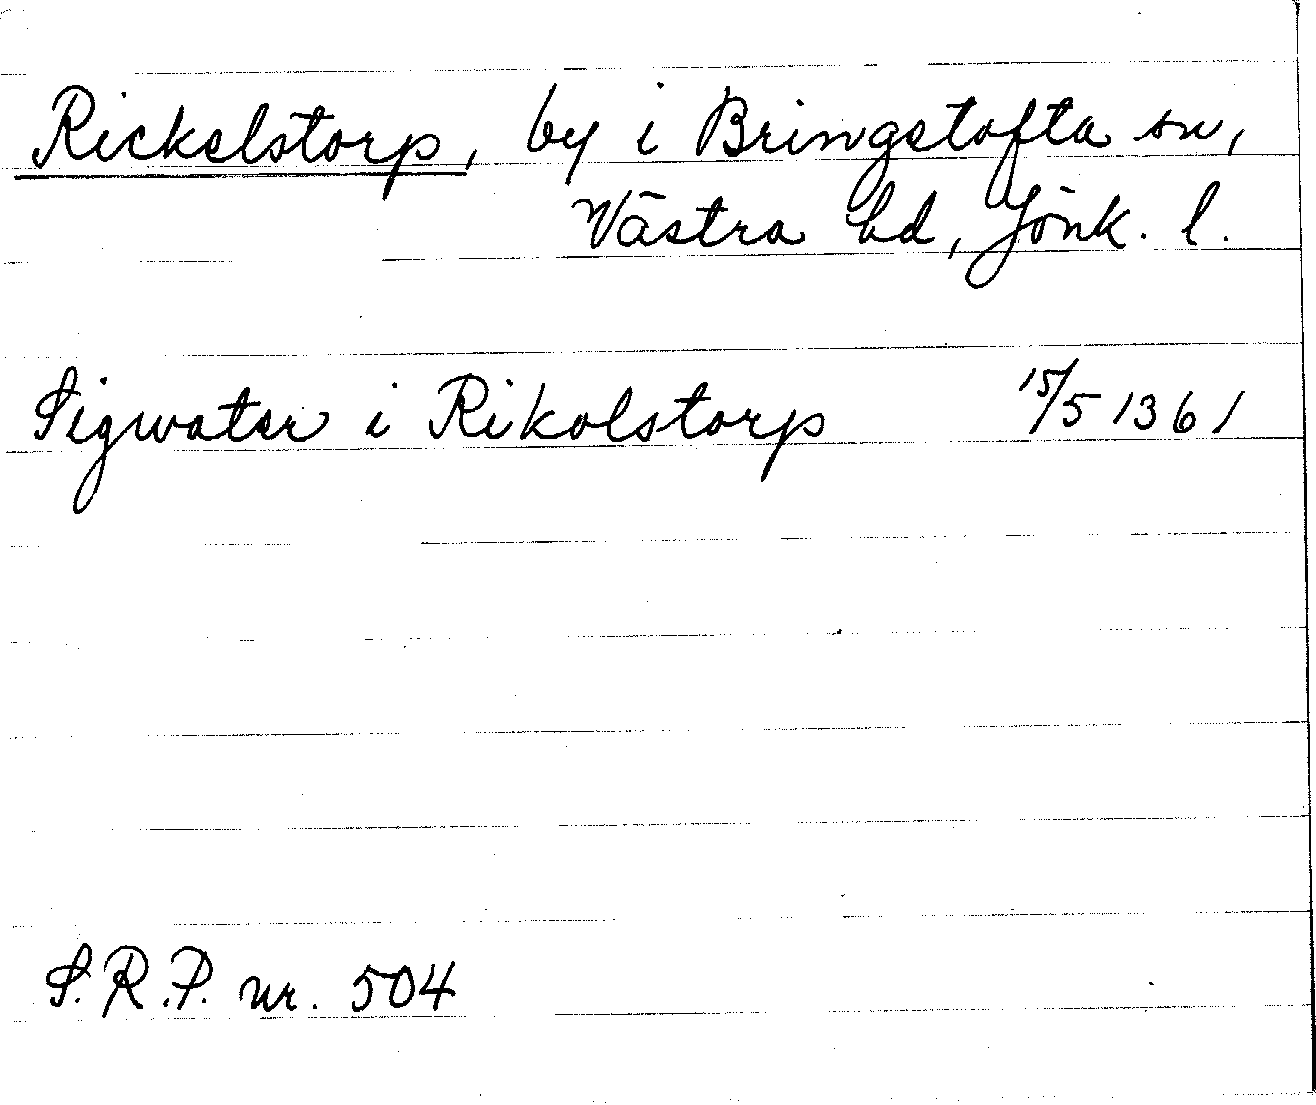 Rickelstorp, by i Bringetofta sn,
Västra hd, Jönk. l.
Sigwater i Rikolstorp 15/5 1361
S.R.P. nr. 504